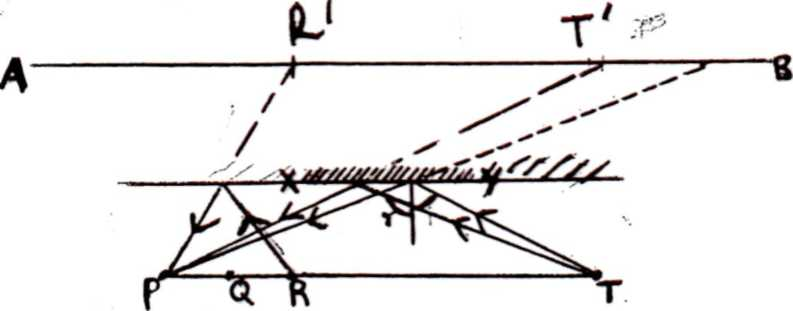 R' T'
A B
x x
r
P Q R T